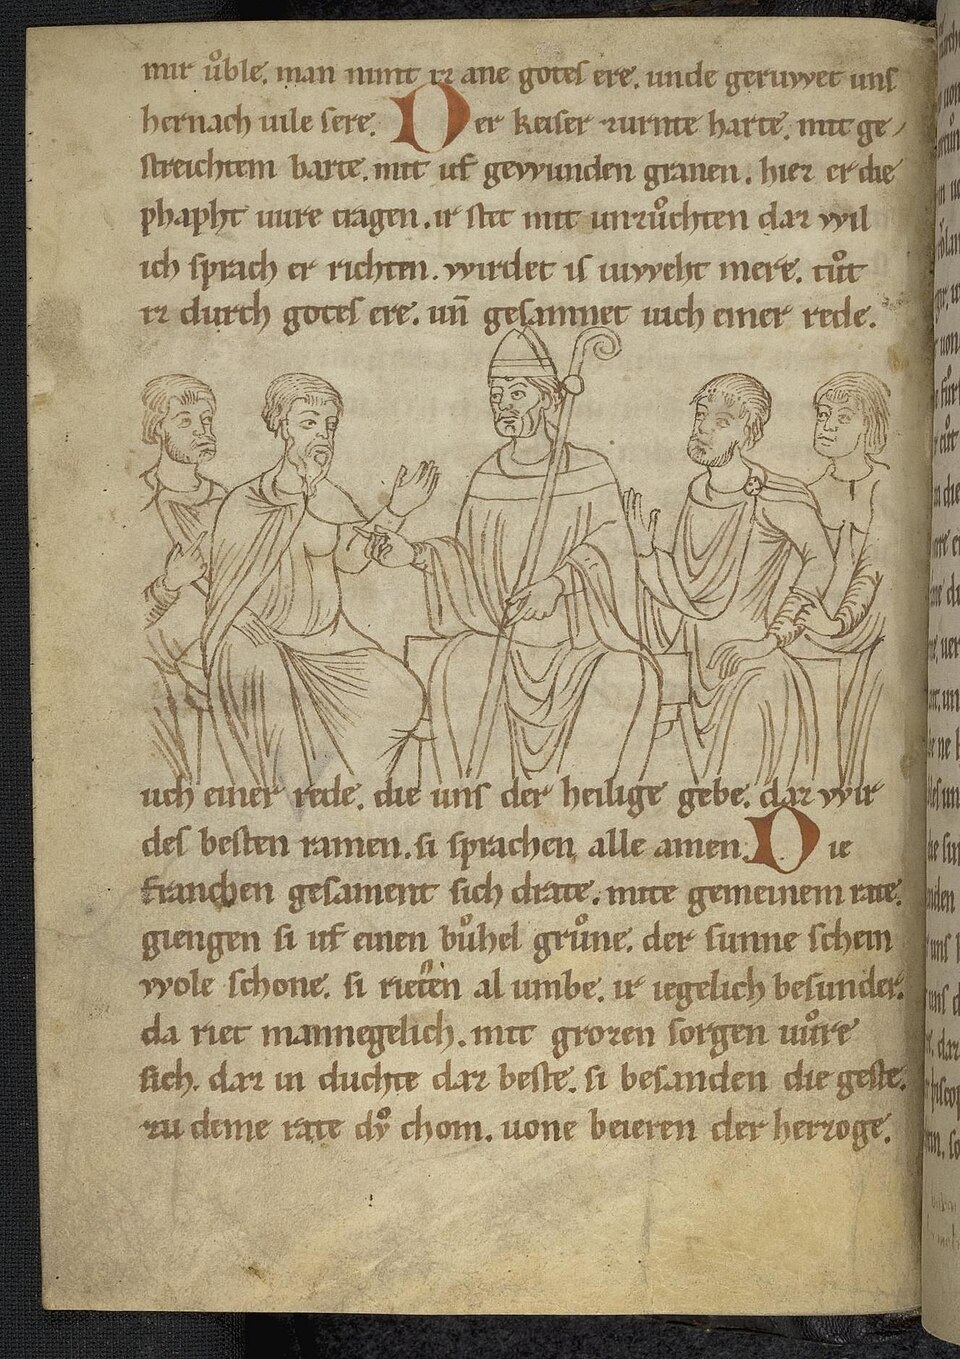 mir uͦble. man nimt iz ane gotes ere. unde geruwet uns
hernach uile sere. Der keiser zurnte harte. mit ge/
streichtem barte. mit uf gewunden granen. hiez er die
phapht uure tragen. ir stet mit unzuͦchten daz wil
ich sprach er richten. wirdet is iuweht mere. tuͦt
iz durch gotes ere. uñ gesamnet uuch einer rede.
uch einer rede. die uns der heilige gebe. daz wir
des besten ramen. si sprachen alle amen. Die
franchen gesament sich drate. mite gemeinem rate.
giengen si uf einen buͦhel gruͦne. der sunne schein
wole schone. si rieten al umbe. ir iegelich besunder.
da riet mannegelich. mit grozen sorgen uuͦre
sich. daz in duchte daz beste. si besanden die geste.
zu deme rate dyͦ chom. uone beieren der herzoge.